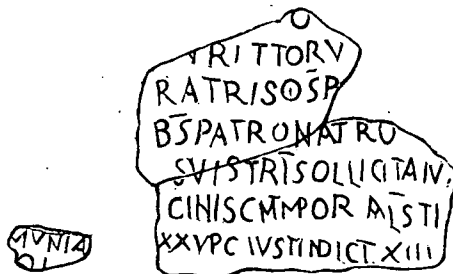 TRITTORV
RATRISOS̄P
BS̄PATRONATRO
SVISTRĪSOLLICITAIV
CINISCMTMPOR ALS̄TI
XXVPC IVSTINDICT XIII
MVNIA